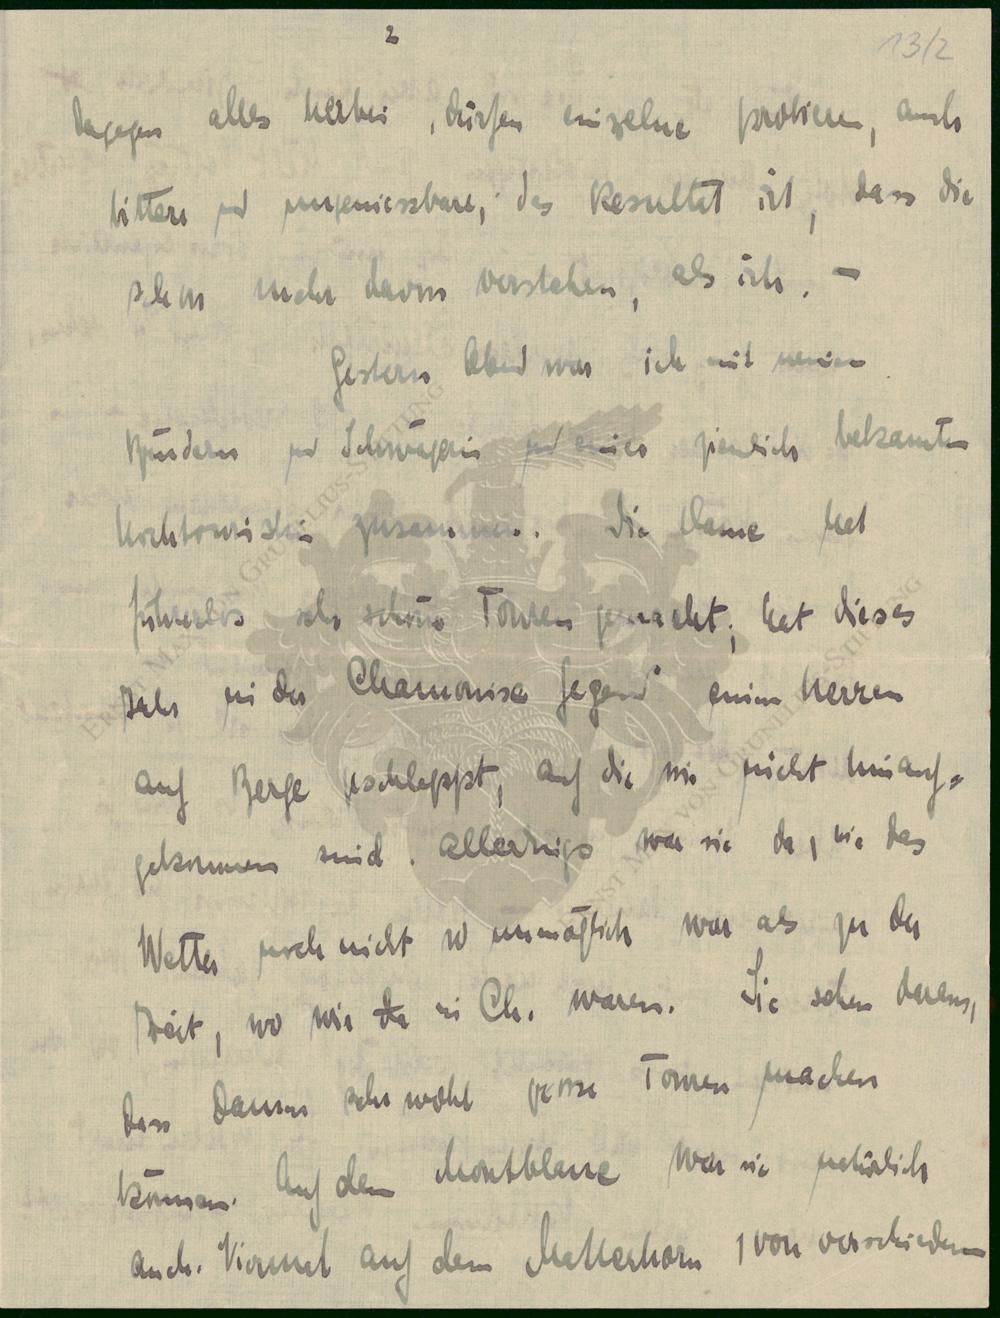 2
13/2
dagegen alles herbei, dürfen einzelne probieren, auch
bittere und ungeniessbare, das Resultat ist, dass die
schon mehr davon verstehen, als ich. –
Gestern Abend war ich mit meinen
Brüdern und Schwägerin und einer ziemlich bekannten
Hochtouristin zusammen. Die Dame hat
führerlos sehr schöne Touren gemacht, hat dieses
Jahr in der Chamonixe Gegend einen Herren
auf Berge geschleppt, auf die wir nicht hinauf-
gekommen sind. Allerdings war sie da, wie das
Wetter noch nicht so unmöglich war als zu der
Zeit, wo wir da in Ch. waren. Sie sehen daraus,
dass Damen sehr wohl grosse Touren machen
können. Auf dem Montblanc war sie natürlich
auch. Viermal auf dem Matterhorn, von verschiedenen
ERNST MAX VON GRUNELIUS-STIFTUNG
ERNST MAX VON GRUNELIUS-STIFTUNG